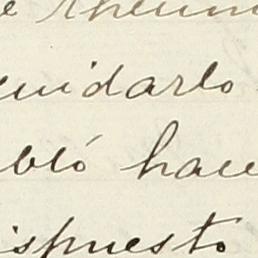 e rheum
cuidarlo
bló hace
ispuesto